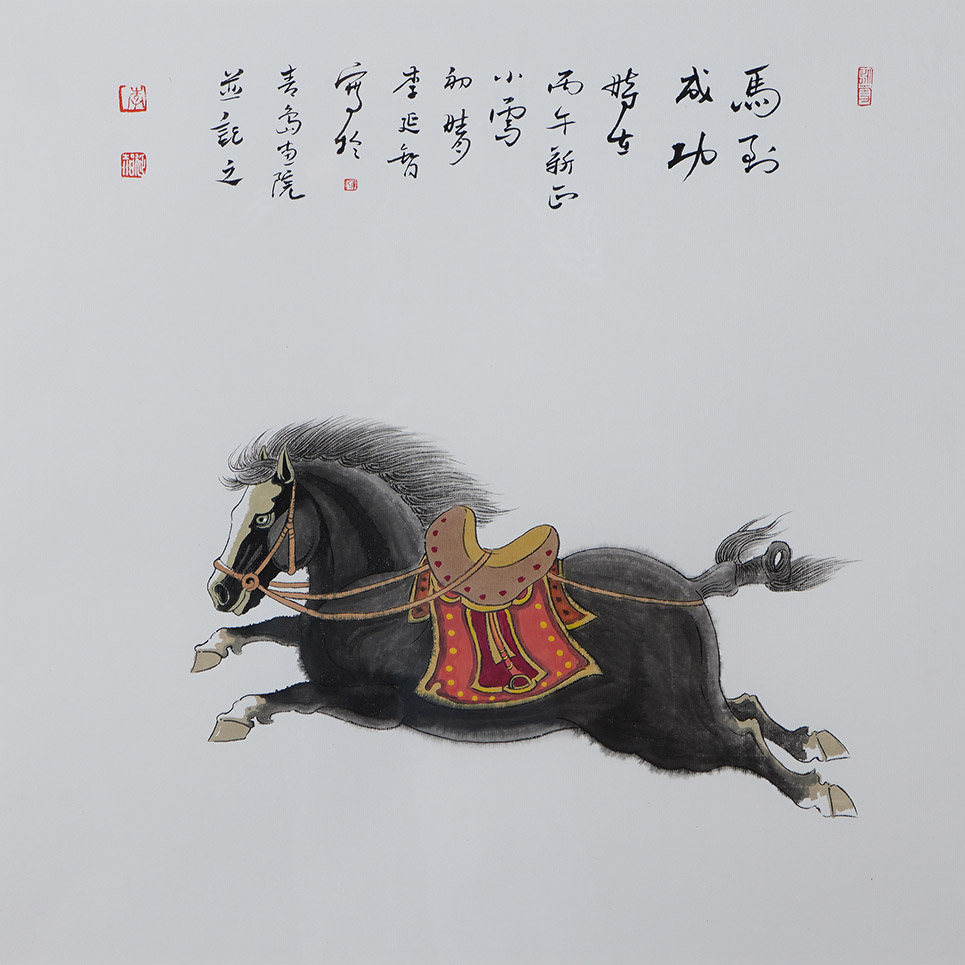 馬到
成功
時在
丙午新正
小雪
初晴
李延智
寫於
青島畫院
並記之